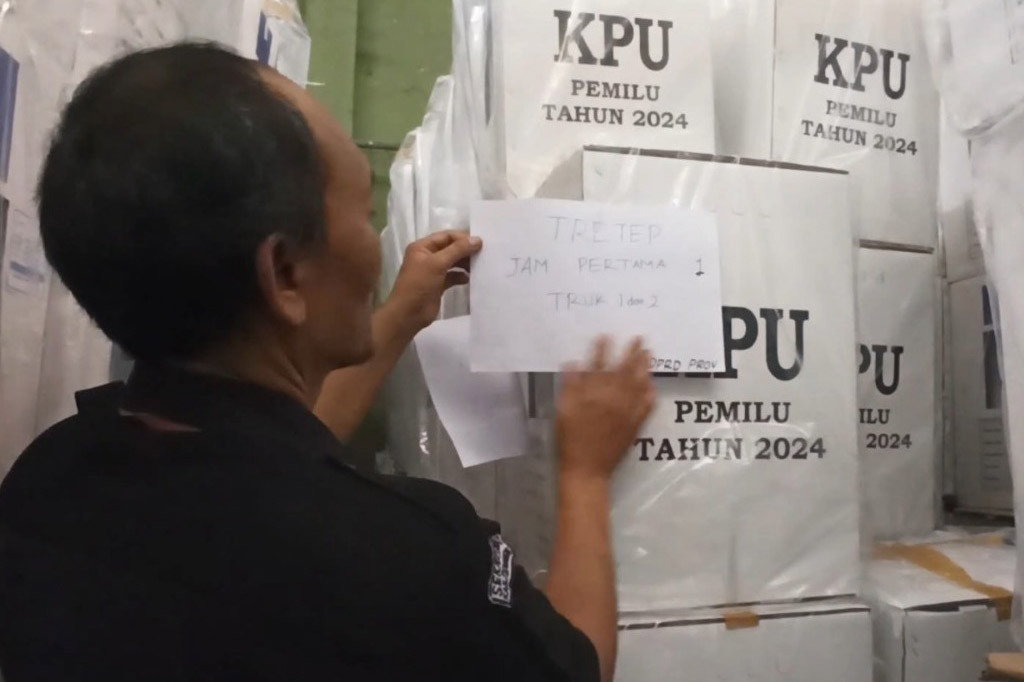 KPU
PEMILU
TAHUN 2024
KPU
PEMILU
TAHUN 2024
TRETEP
JAM PERTAMA 1
TRUK 1 dan 2
DPRD PROV
KPU
PEMILU
TAHUN 2024
PU
ILU
2024